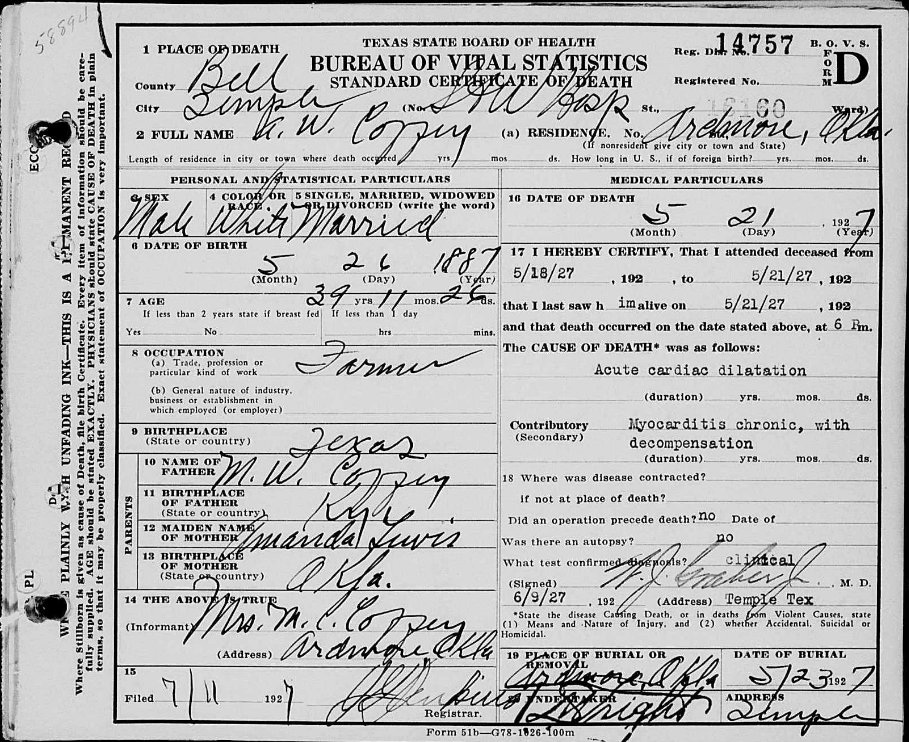 58894
TEXAS STATE BOARD OF HEALTH
BUREAU OF VITAL STATISTICS
STANDARD CERTIFICATE OF DEATH
Reg. Dis. No. 14757 B. O. V. S.
FORM D
Registered No.
1 PLACE OF DEATH
County Bell
City Temple (No. Hosp St., Ward)
2 FULL NAME A. W. Coppey (a) RESIDENCE. No. Ardmore, Okla.
(If nonresident give city or town and State)
Length of residence in city or town where death occurred yrs. mos ds. How long in U. S., if of foreign birth? yrs. mos. ds.
PERSONAL AND STATISTICAL PARTICULARS
3 SEX 4 COLOR OR RACE. 5 SINGLE, MARRIED, WIDOWED OR DIVORCED (write the word)
Male White Married
6 DATE OF BIRTH
5 26 1887
(Month) (Day) (Year)
7 AGE 39 yrs 11 mos. 26 ds.
If less than 2 years state if breast fed If less than 1 day
Yes No hrs mins.
8 OCCUPATION
(a) Trade, profession or
particular kind of work Farmer
(b) General nature of industry,
business or establishment in
which employed (or employer)
9 BIRTHPLACE
(State or country) Texas
PARENTS
10 NAME OF
FATHER M. W. Coppey
11 BIRTHPLACE
OF FATHER Ky.
(State or country)
12 MAIDEN NAME
OF MOTHER Amanda Lewis
13 BIRTHPLACE
OF MOTHER
(State or country) Okla.
14 THE ABOVE IS TRUE
(Informant) Mrs. M. C. Coppey
(Address) Ardmore Okla
15
Filed 7/11 1927
Registrar.
MEDICAL PARTICULARS
16 DATE OF DEATH
5 21 , 1927
(Month) (Day) (Year)
17 I HEREBY CERTIFY, That I attended deceased from
5/18/27 , 192 , to 5/21/27 , 192
that I last saw h im alive on 5/21/27 , 192
and that death occurred on the date stated above, at 6 P m.
The CAUSE OF DEATH* was as follows:
Acute cardiac dilatation
(duration) yrs. mos. ds.
Contributory Myocarditis chronic, with
(Secondary) decompensation
(duration) yrs. mos. ds.
18 Where was disease contracted?
if not at place of death?
Did an operation precede death? no Date of
Was there an autopsy? no
What test confirmed diagnosis? clinical
(Signed) M. D.
6/9/27 , 192 (Address) Temple Tex
*State the disease Causing Death, or in deaths from Violent Causes, state
(1) Means and Nature of Injury, and (2) whether Accidental, Suicidal or
Homicidal.
19 PLACE OF BURIAL OR REMOVAL DATE OF BURIAL
Ardmore, Okla 5/23 1927
20 UNDERTAKER ADDRESS
Wright Temple
Form 51b—G78-1026-100m
PLAINLY WITH UNFADING INK—THIS IS A PERMANENT RECORD
Where Stillborn is given as cause of Death, file birth Certificate. Every item of information should be care-
fully supplied. AGE should be stated EXACTLY. PHYSICIANS should state CAUSE OF DEATH in plain
terms, so that it may be properly classified. Exact statement of OCCUPATION is very important.